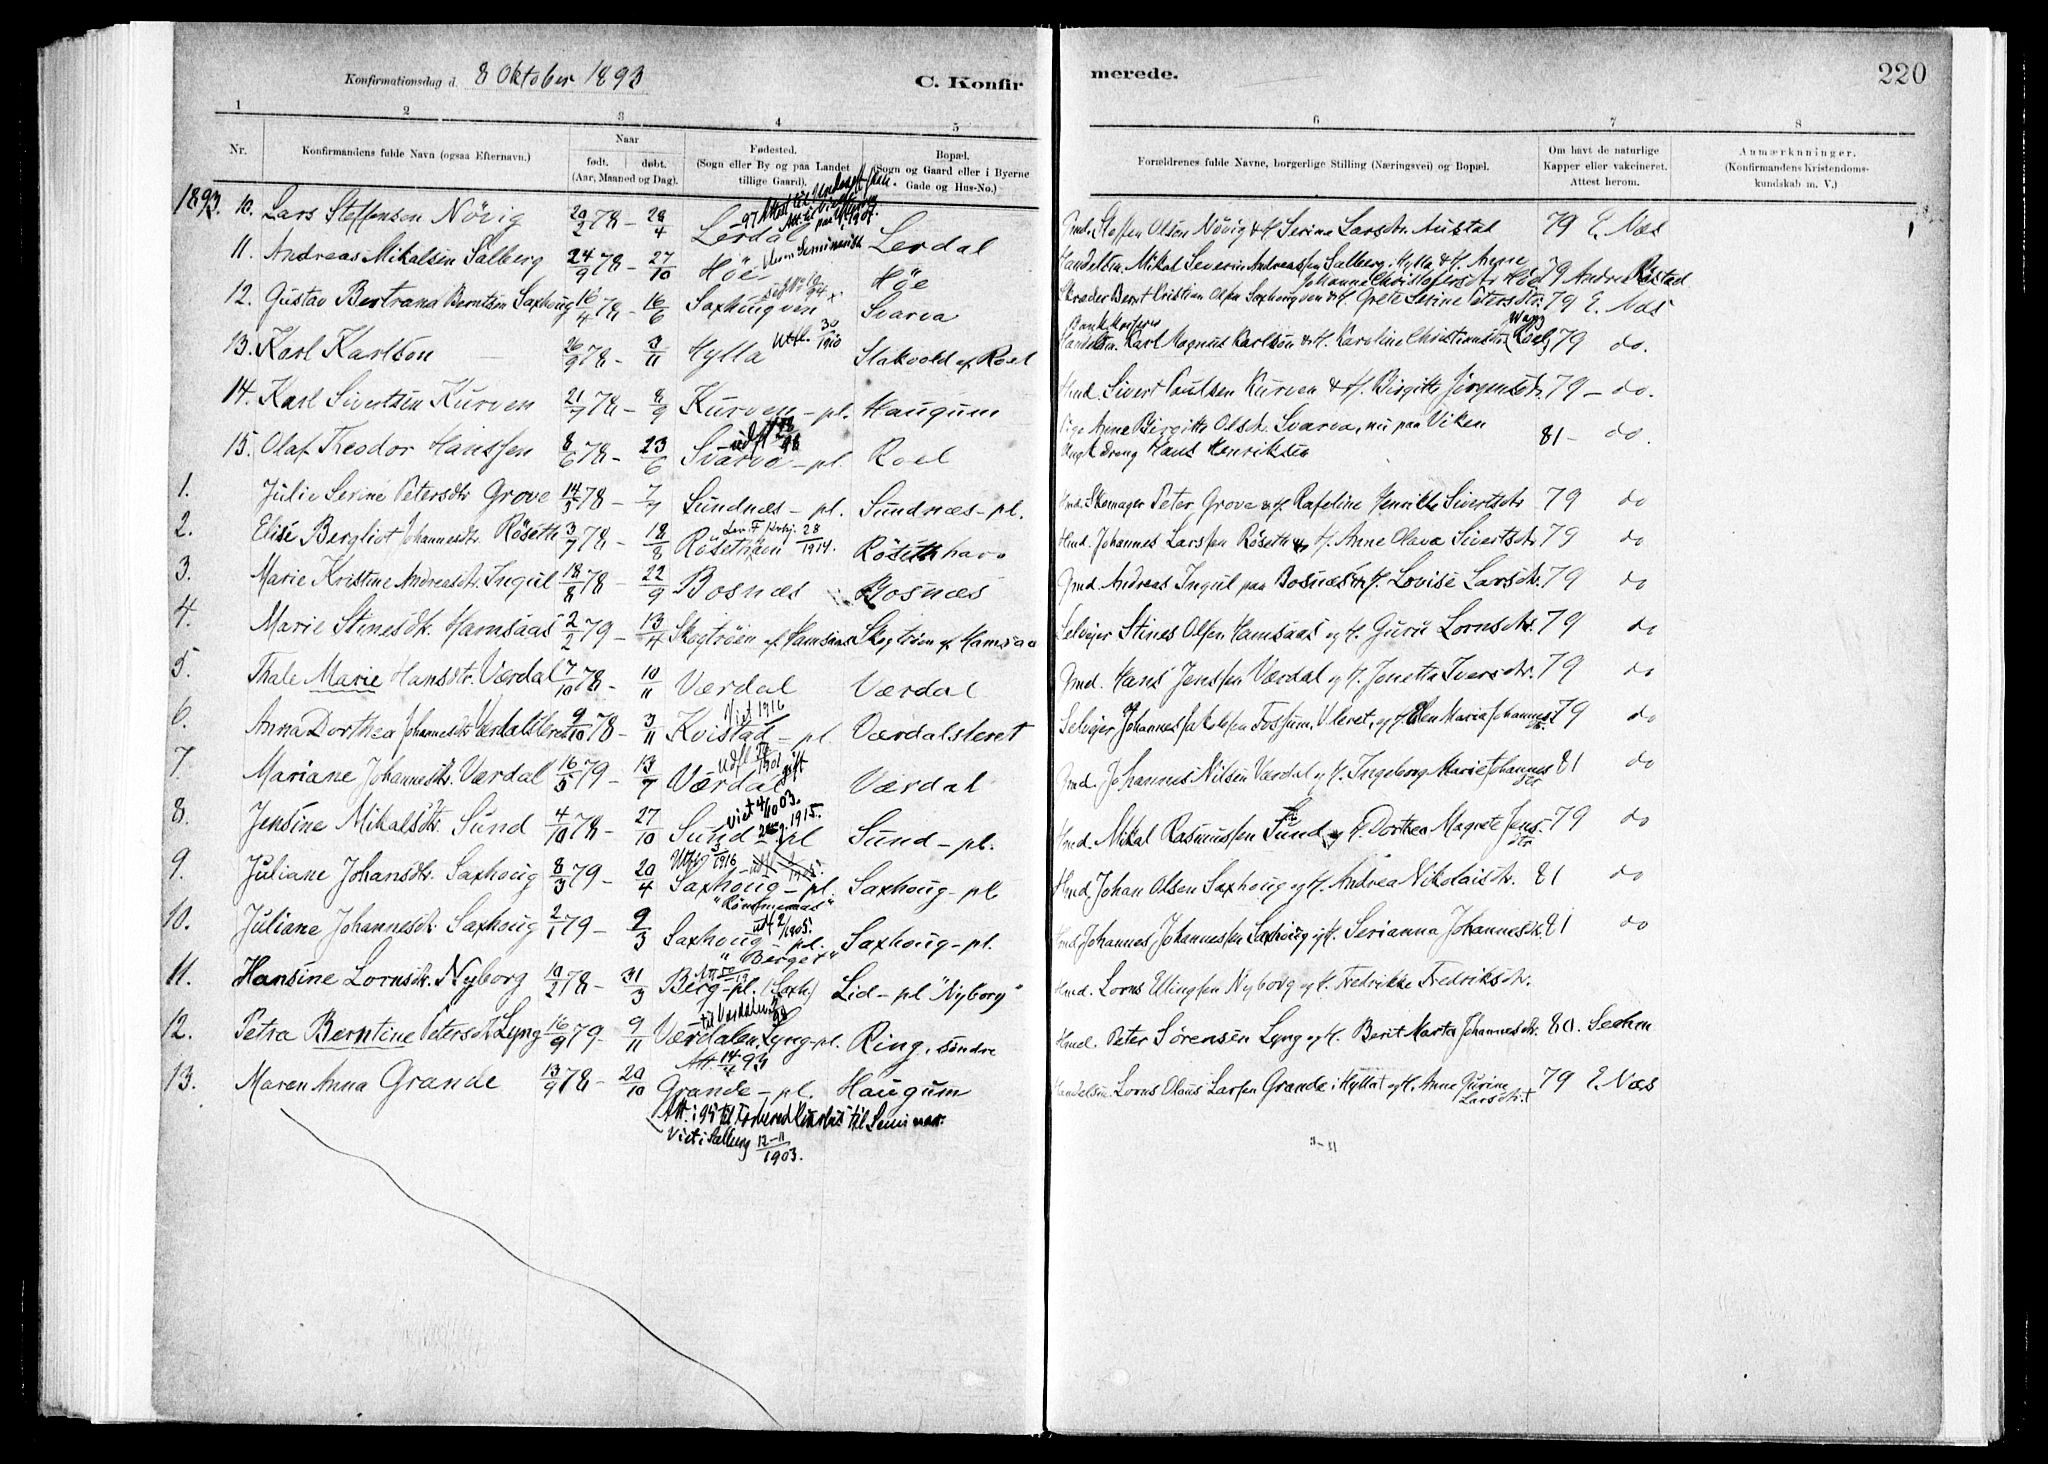 Konfirmationsdag d. 8 Oktober 1893 C. Konfir merede. 220
1 2 3 4 5 6 7 8
Nr. Konfirmandens fulde Navn (ogsaa Efternavn.) Naar født. døbt. (Aar, Maaned og Dag). Fødested. (Sogn eller By og paa Landet tillige Gaard). Bopæl. (Sogn og Gaard eller i Byerne Gade og Hus-No.) Forældrenes fulde Navne, borgerlige Stilling (Næringsvei) og Bopæl. Om havt de naturlige Kapper eller vakcineret. Attest herom. Anmærkninger. (Konfirmandens Kristendomskundskab m. V.)
1893. 10. Lars Steffensen Növig 20/2 78 – 28/4 Lerdal Lerdal Gmd. Steffen Olsen Növig & H. Serina Larsdtr. Austad 79 E. Næs
11. Andreas Mikalsen Salberg 24/9 78 – 27/10 Höe Höe Handelsm. Mikal Severin Andreassen Salberg, Hylla & H. Anne Johanna Christofersdtr Höe 79
12. Gustav Bertrana Berntsen Saxhoug 16/4 78 – 16/6 Saxhougven Svarva Skræder Bernt Cristian Olsen Saxhougven & H. Grete Serine Petersdtr. 79 E. Næs
13. Karl Karlsen 26/9 78 – 3/11 Hylla Utfl. 30/1910 Stakvold af Roel Handelsm. Karl Magnus Karlsen & H. Karoline Christiansdtr. (Roel) 79 do.
14. Karl Sivertsen Kurven 21/7 78 – 8/9 Kurven – pl. Haugum Hmd. Sivert Paulsen Kurven & H. Birgitte Jörgensdtr. 79 – do.
15. Olaf Theodor Hanssen 8/6 78 – 23/6 Svarva – pl. Roel Pige Anne Birgitte Olsdt. Svarva, nu paa Viken
Ungk. Dreng Hans Henriksen 81 – do.
1. Julie Serine Petersdtr Grove 14/5 78 – 7/7 Sundnæs – pl. Sundnæs – pl. Hmd. Skomager Peter Grove & H. Rafeline Henrikke Sivertsdtr 79 do
2. Elise Bergliot Johannesdtr. Röseth 3/7 78 – 18/8 Rösethavn 28/1914. Rösethhavn Hmd. Johannes Larssen Röseth & H. Anne Olava Sivertsdtr 79 do
3. Marie Kristine Andreasdtr. Ingul 18/8 78 – 22/9 Bosnæs Bosnæs Gmd. Andreas Ingul paa Bosnæs & H. Lovise Larsdtr. 79 do
4. Marie Stinesdtr. Hamsaas 2/2 79 – 13/4 Skogtröen af Hamsaas Skogtröen af Hamsaa Selvejer Stines Olsen Hamsaas og H. Guru Lornsdtr. 79 do
5. Thale Marie Hansdtr. Værdal 7/10 78 – 10/11 Værdal Værdal Gmd. Hans Jenssen Værdal og H. Jonetta Iversdtr. 79 do
6. Anna Dorthea Johannesdtr Værdalsleret 9/10 78 – 3/11 Viet 1916 Kvistad – pl. Værdalsleret Selvejer Johannes Jakobsen Fossum, V.leret, og H. Elen Maria Johannesdtr. 79 do
7. Mariane Johannesdtr. Værdal 16/5 79 – 13/7 Værdal gift Værdal Gmd. Johannes Nilsen Værdal og H. Ingeborg Marie Johannesdtr 81 do
8. Jensine Mikalsdtr. Sund 4/10 78 – 27/10 Viet 4/10 03. Sund – pl 1915. Sund – pl. Hmd. Mikal Rasmussen Sund og H. Dorthea Magrete Jensdtr 79 do
9. Juliane Johansdtr. Saxhoug 8/3 79 – 20/4 Saxhoug – pl. Saxhoug – pl Hmd. Johan Olsen Saxhoug og H. Andrea Nikolaisdtr. 81 do
10. Juliane Johannesdtr Saxhoug 2/1 79 – 9/3 Saxhoug – pl. "Berget" Saxhoug – pl. Hmd. Johannes Johannessen Saxhoug og H. Serianna Johannesdtr. 81 do
11. Hansine Lornsdtr. Nyborg 10/2 78 – 31/3 Berg – pl. (Saxh.) Lid – pl "Nyborg" Hmd. Lorns Ellingsen Nyborg og H. Fredrikke Fredriksdtr.
12. Petra Berntine Petersdtr Lyng 16/9 79 – 9/11 Værdalen, Lyng – pl. Ring, söndre Hmd. Peter Sörensen Lyng og H. Berit Marta Johannesdtr. 80. Sechm
13. Maren Anna Grande 13/9 78 – 20/10 Grande – pl. Haugum Handelsm. Lorns Olaus Larsen Grande i Hylla og H. Anne Jurine Larsdtr. 79 E. Næs
Viet i Salberg 12-11/1903.